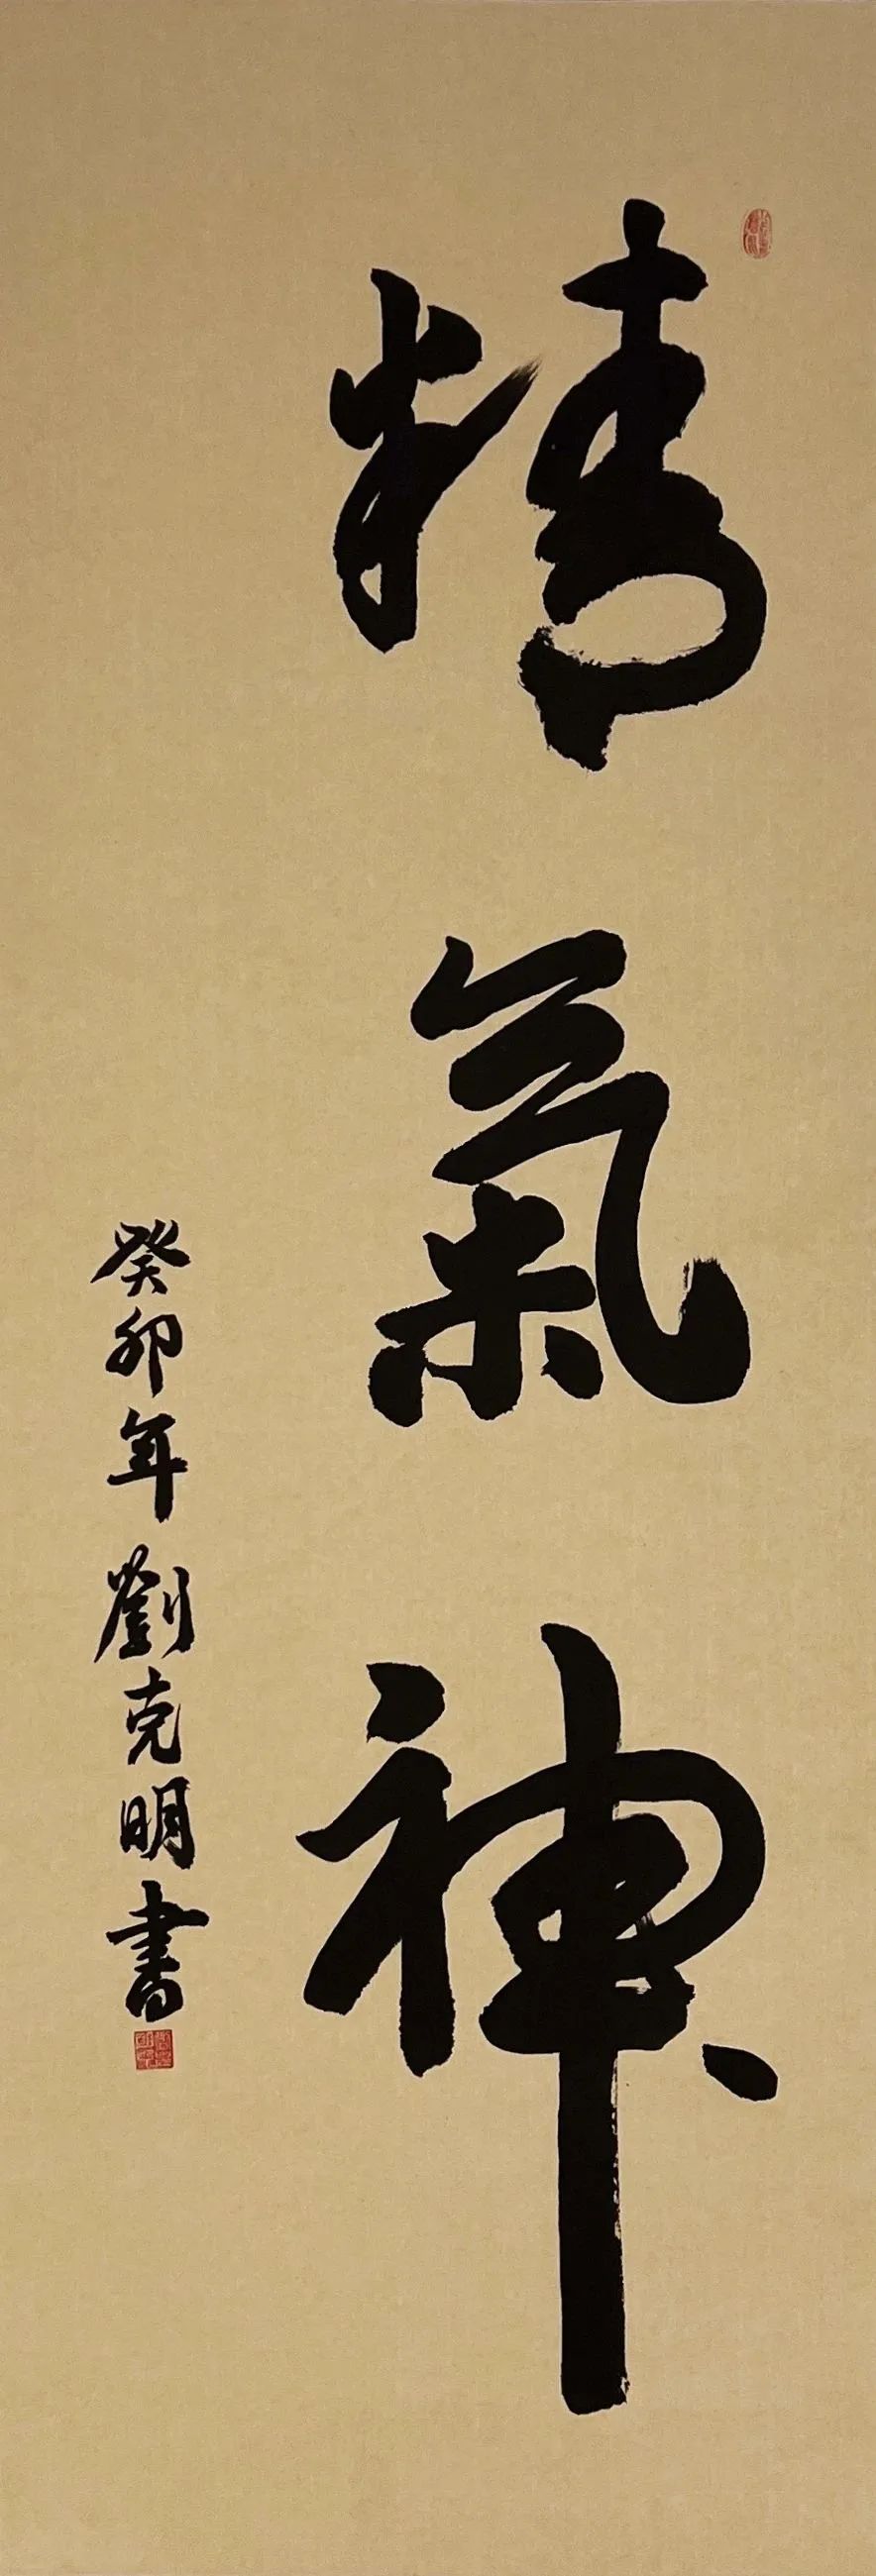 精氣神
癸卯年劉克明書